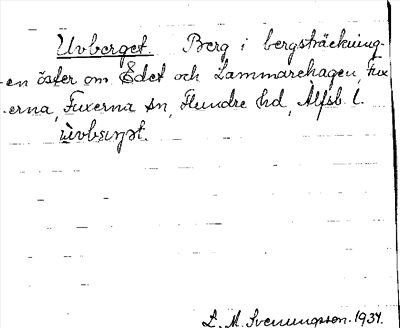 Uvberget. Berg i bergsträckning-
en öster om Ödet och Lammarehagen, Fux
erna, Fuxerna sn, Flundre hd, Älfsb. l.
L. M. Svenungsson. 1934.